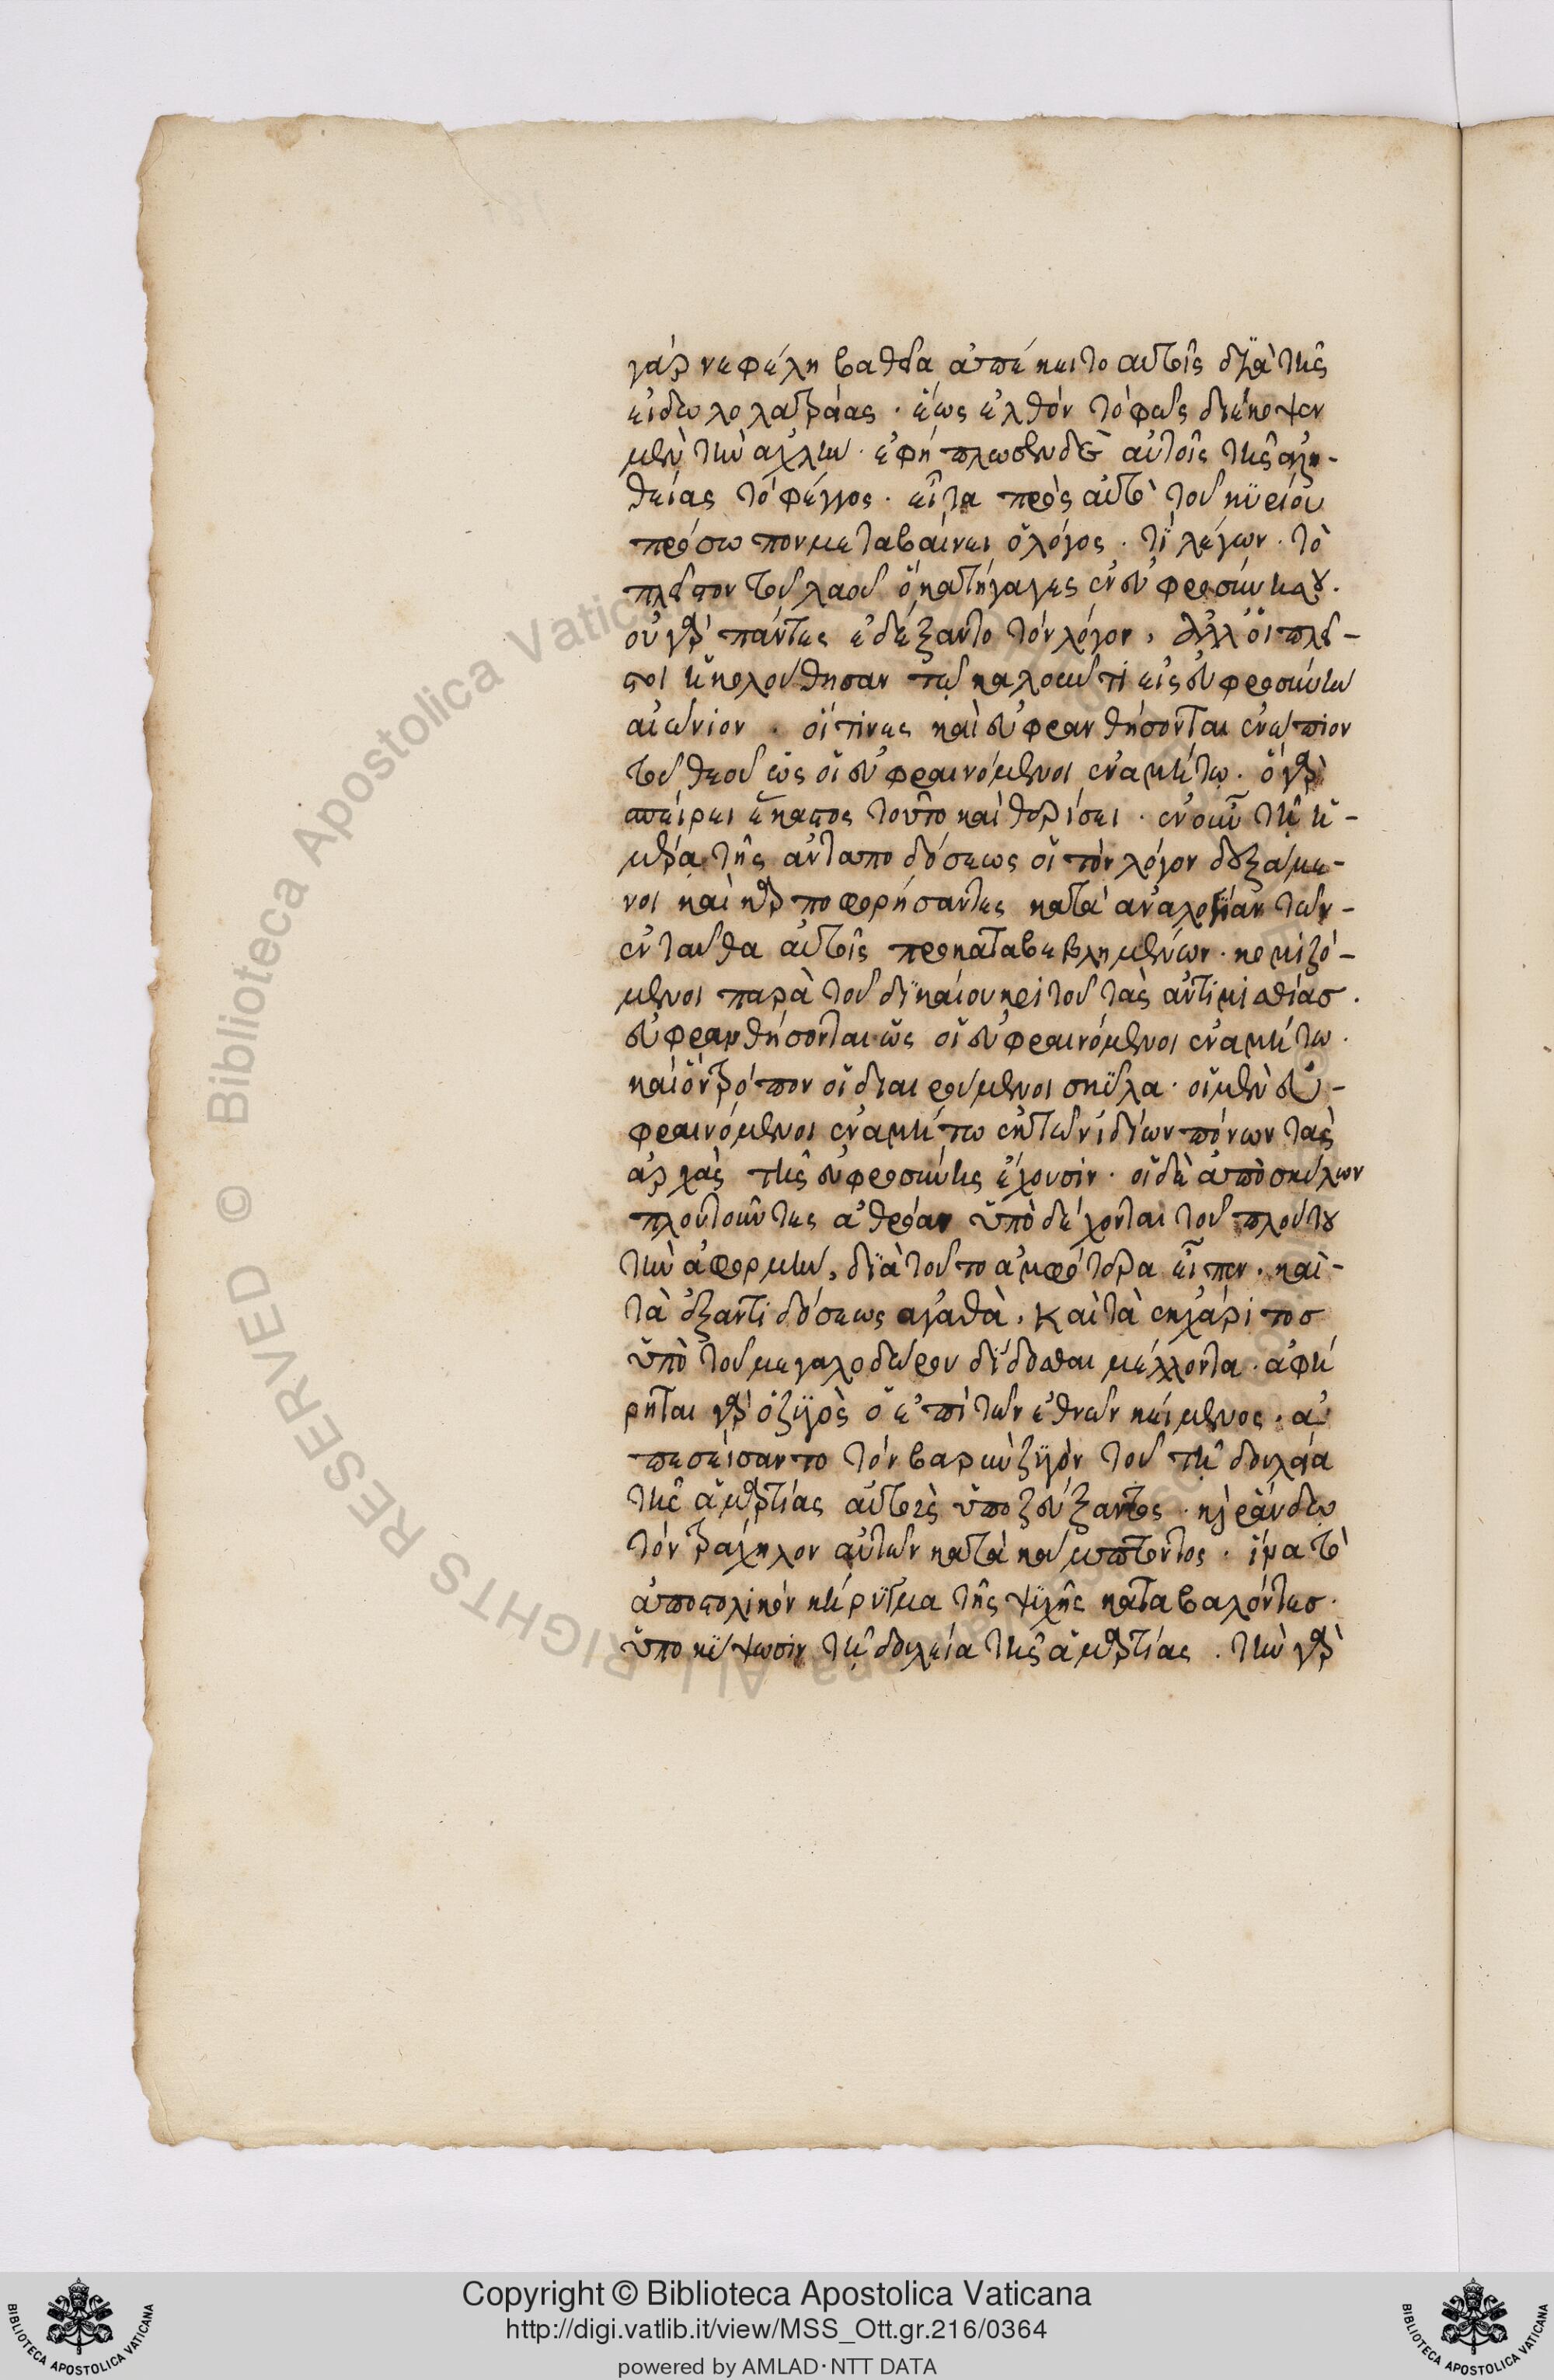 γὰρ νεφέλη βαθεῖα ἀπέκειτο αὐτοῖς διὰ τῆς
εἰδωλολατρείας · ἕως ἐλθὸν τὸ φῶς διέκοψεν
μὲν τὴν ἀχλὺν · ἐφήπλωσεν δὲ αὐτοῖς τῆς ἀλη-
θείας τὸ φέγγος · εἶτα πρὸς αὐτὸ τοῦ κυρίου
πρόσωπον μεταβαίνει ὁ λόγος · τί λέγων · τὸ
πλεῖστον τοῦ λαοῦ ὃ κατήγαγες ἐν εὐφροσύνῃ σου ·
οὐ γὰρ πάντες ἐδέξαντο τὸν λόγον, ἀλλ' οἱ πλεῖ-
στοι ἠκολούθησαν τῷ καλοῦντι εἰς εὐφροσύνην
αἰώνιον · οἵτινες καὶ εὐφρανθήσονται ἐνώπιον
τοῦ θεοῦ ὡς οἱ εὐφραινόμενοι ἐν ἀμήτῳ · ὃ γὰρ
σπείρει ἕκαστος τοῦτο καὶ θερίσει · ἐν οὖν τῇ ἡ-
μέρᾳ τῆς ἀνταποδόσεως οἱ τὸν λόγον δεξάμε-
νοι καὶ καρποφορήσαντες κατὰ ἀναλογίαν τῶν
ἐνταῦθα αὐτοῖς προκαταβεβλημένων · κομιζό-
μενοι παρὰ τοῦ δικαίου κριτοῦ τὰς ἀντιμισθίασ ·
εὐφρανθήσονται ὡς οἱ εὐφραινόμενοι ἐν ἀμήτω ·
καὶ ὃν τρόπον οἱ διαιρούμενοι σκῦλα · οἱ μὲν εὐ-
φραινόμενοι ἐν ἀμήτω ἐκ τῶν ἰδίων πόνων τὰς
ἀρχὰς τῆς εὐφροσύνης ἔχουσιν · οἱ δὲ ἀπὸ σκύλων
πλουτοῦντες ἀθρόαν ὑποδέχονται τοῦ πλούτου
τὴν ἀφορμὴν, διὰ τοῦτο ἀμφότερα εἶπεν · καὶ
τὰ ἐξ ἀντιδόσεως ἀγαθὰ, καὶ τὰ ἐκ χάριτοσ
ὑπὸ τοῦ μεγαλοδώρου δίδοσθαι μέλλοντα · ἀφή
ρηται γὰρ ὁ ζυγὸς ὁ ἐπὶ τῶν ἐθνῶν κείμενος · ἀ
πεσείσαντο τὸν βαρὺν ζυγὸν τοῦ τῇ δουλεία
τῆς ἁμαρτίας αὐτοὺς ὑποζεύξαντος · κἀ ράβδῳ
τὸν τράχηλον αὐτῶν κατακάμπτοντος · ἵνα τὸ
ἀποστολικὸν κήρυγμα τῆς ψυχῆς καταβαλόντεσ ·
ὑποκύψωσιν τῇ δουλεία τῆς ἁμαρτίας · τὴν γὰρ
Copyright © Biblioteca Apostolica Vaticana
http://digi.vatlib.it/view/MSS_Ott.gr.216/0364
powered by AMLAD·NTT DATA